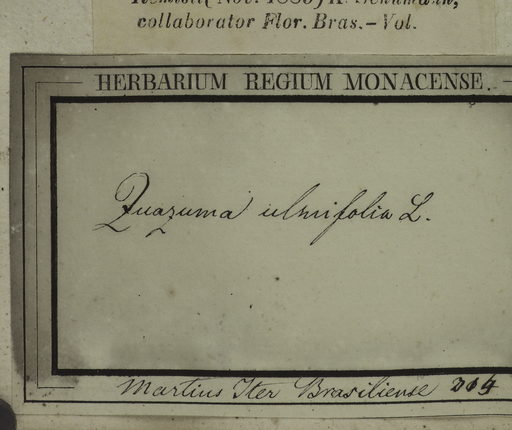 collaborator Flor. Bras.–Vol.
HERBARIUM REGIUM MONACENSE.
Guazuma ulmifolia L.
Martius Iter Brasiliense